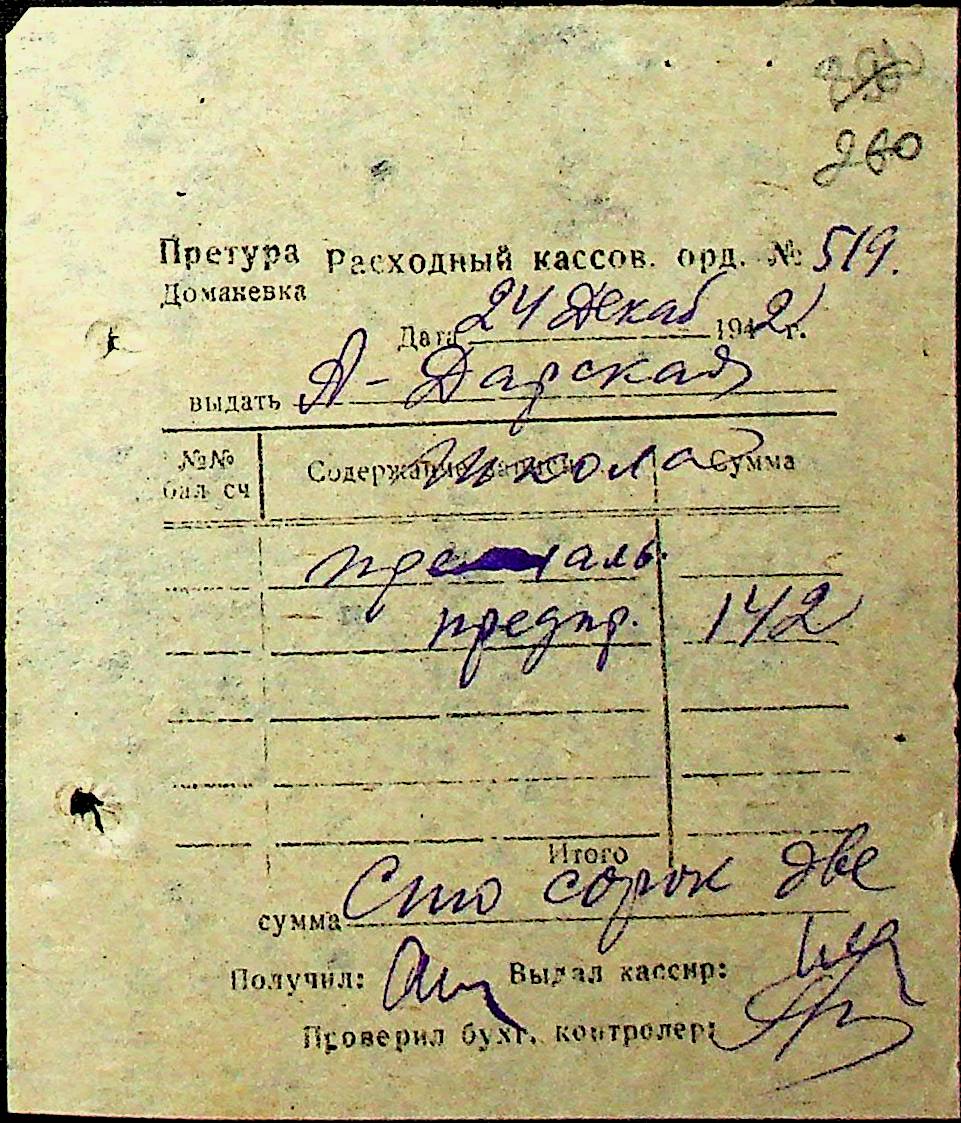 260
Претура Расходный кассов. орд. № 519.
Доманевка
Дата 24 Декаб 1942 г.
выдать А-Дарская
школа
№№ бал сч Содержание записи Сумма
предпр. 142
Итого
сумма Сто сорок две
Получил: Выдал кассир:
Проверил бухг. контролер: